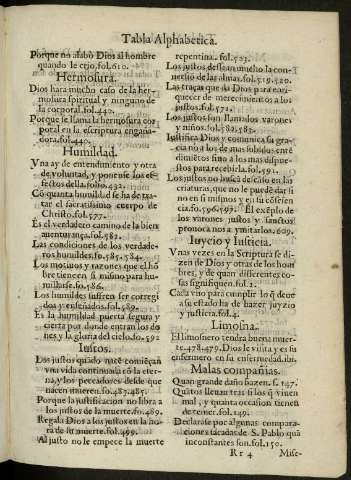 Tabla Alphabetica.
Porque no alabò Dios al hombre
quando le crio, fol.610.
Hermosura.
Dios hara mucho caso de la her-
mosura spiritual y ninguno de
la corporal. fol.440.
Porque se llama la hermosura cor
poral en la escriptura engaña-
dora. fol.440.
Humildad.
Vna ay de entendimiento y otra
de voluntad, y ponese los ef-
fectos della. folio.432.
Cō quanta humildad se ha de tra-
tar el sacratissimo cuerpo de
Christo. fol.577.
Es el verdadero camino de la bien
auenturança. fol.582.
Las condiciones de los verdade-
ros humildes. fo.585.584.
Los motiuos y razones que el hō
bre tiene en si mismo para hu-
millarse. fo.586.
Los humildes suffren ser corregi
dos y enseñados. fol.589.
Es la humildad puerta segura y
cierta por donde entran los do
nes y la gloria del cielo. fo.592
Iustos.
Los justos quādo muerē comiēçan
vna vida continuada cō la eter-
na, y los peccadores desde que
nacen mueren. fo.487.485.
Porque la justificacion no libra a
los justos de la muerte. fo.489.
Regala Dios a los justos en la ho-
ra de su muerte. fol.499.
Al justo no le empece la muerte
repentina. fol.503.
Los justos dessean mucho la con-
uersiō de las almas. fol.519.520.
Las traças que da Dios para enri-
quecer de merecimientos a los
justos. fol.572.
Los justos son llamados varones
y niños. fol.582.583.
Iustifica Dios y comunica su gra-
cia no a los de mas subidos entē
dimiētos sino a los mas dispue-
stos para recebirla. fol.591.
Los justos no buscā descāso en las
criaturas, que no le puede dar si
no en si mismos y en su cōscien
cia. fo.596.597. El exēplo de
los varones justos y sanctos
prouoca nos a ymitarlos. 609.
Iuyzio y Iusticia.
Vnas vezes en la Scriptura se di-
zen de Dios y otras de los hom
bres, y de quan differentes co-
sas significuen. fol.1.
Cada vno para cumplir lo q̄ deue
a su estado ha de hazer juyzio
y justicia. fol.4.
Limosna.
El limosnero tendra buena muer-
te. 478.479. Dios le visita y es su
enfermero en su enfermedad. ibi.
Malas compañias.
Quan grande daño hazen. f.147.
Quātos lleuan tras si los q̄ viuen
mal, y quanta occasion tienen
de temer. fol.149.
Declarase por algunas compara-
ciones sacadas de S. Pablo quā
inconstantes son. fol.150.
Rr 4 Mise-